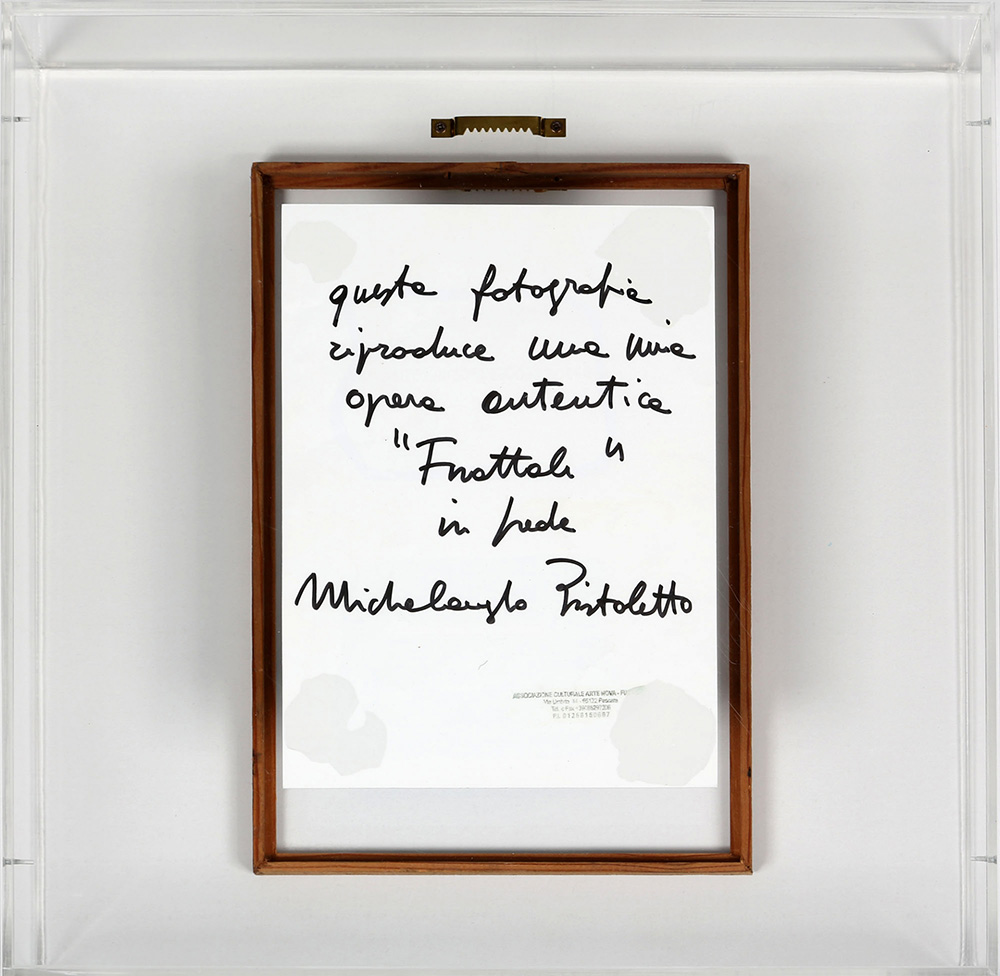 questa fotografia
riproduce una mia
opera autentica
"Frattale"
in fede
Michelangelo Pistoletto
ASSOCIAZIONE CULTURALE ARTE NOVA
Pescara
Tel. e Fax